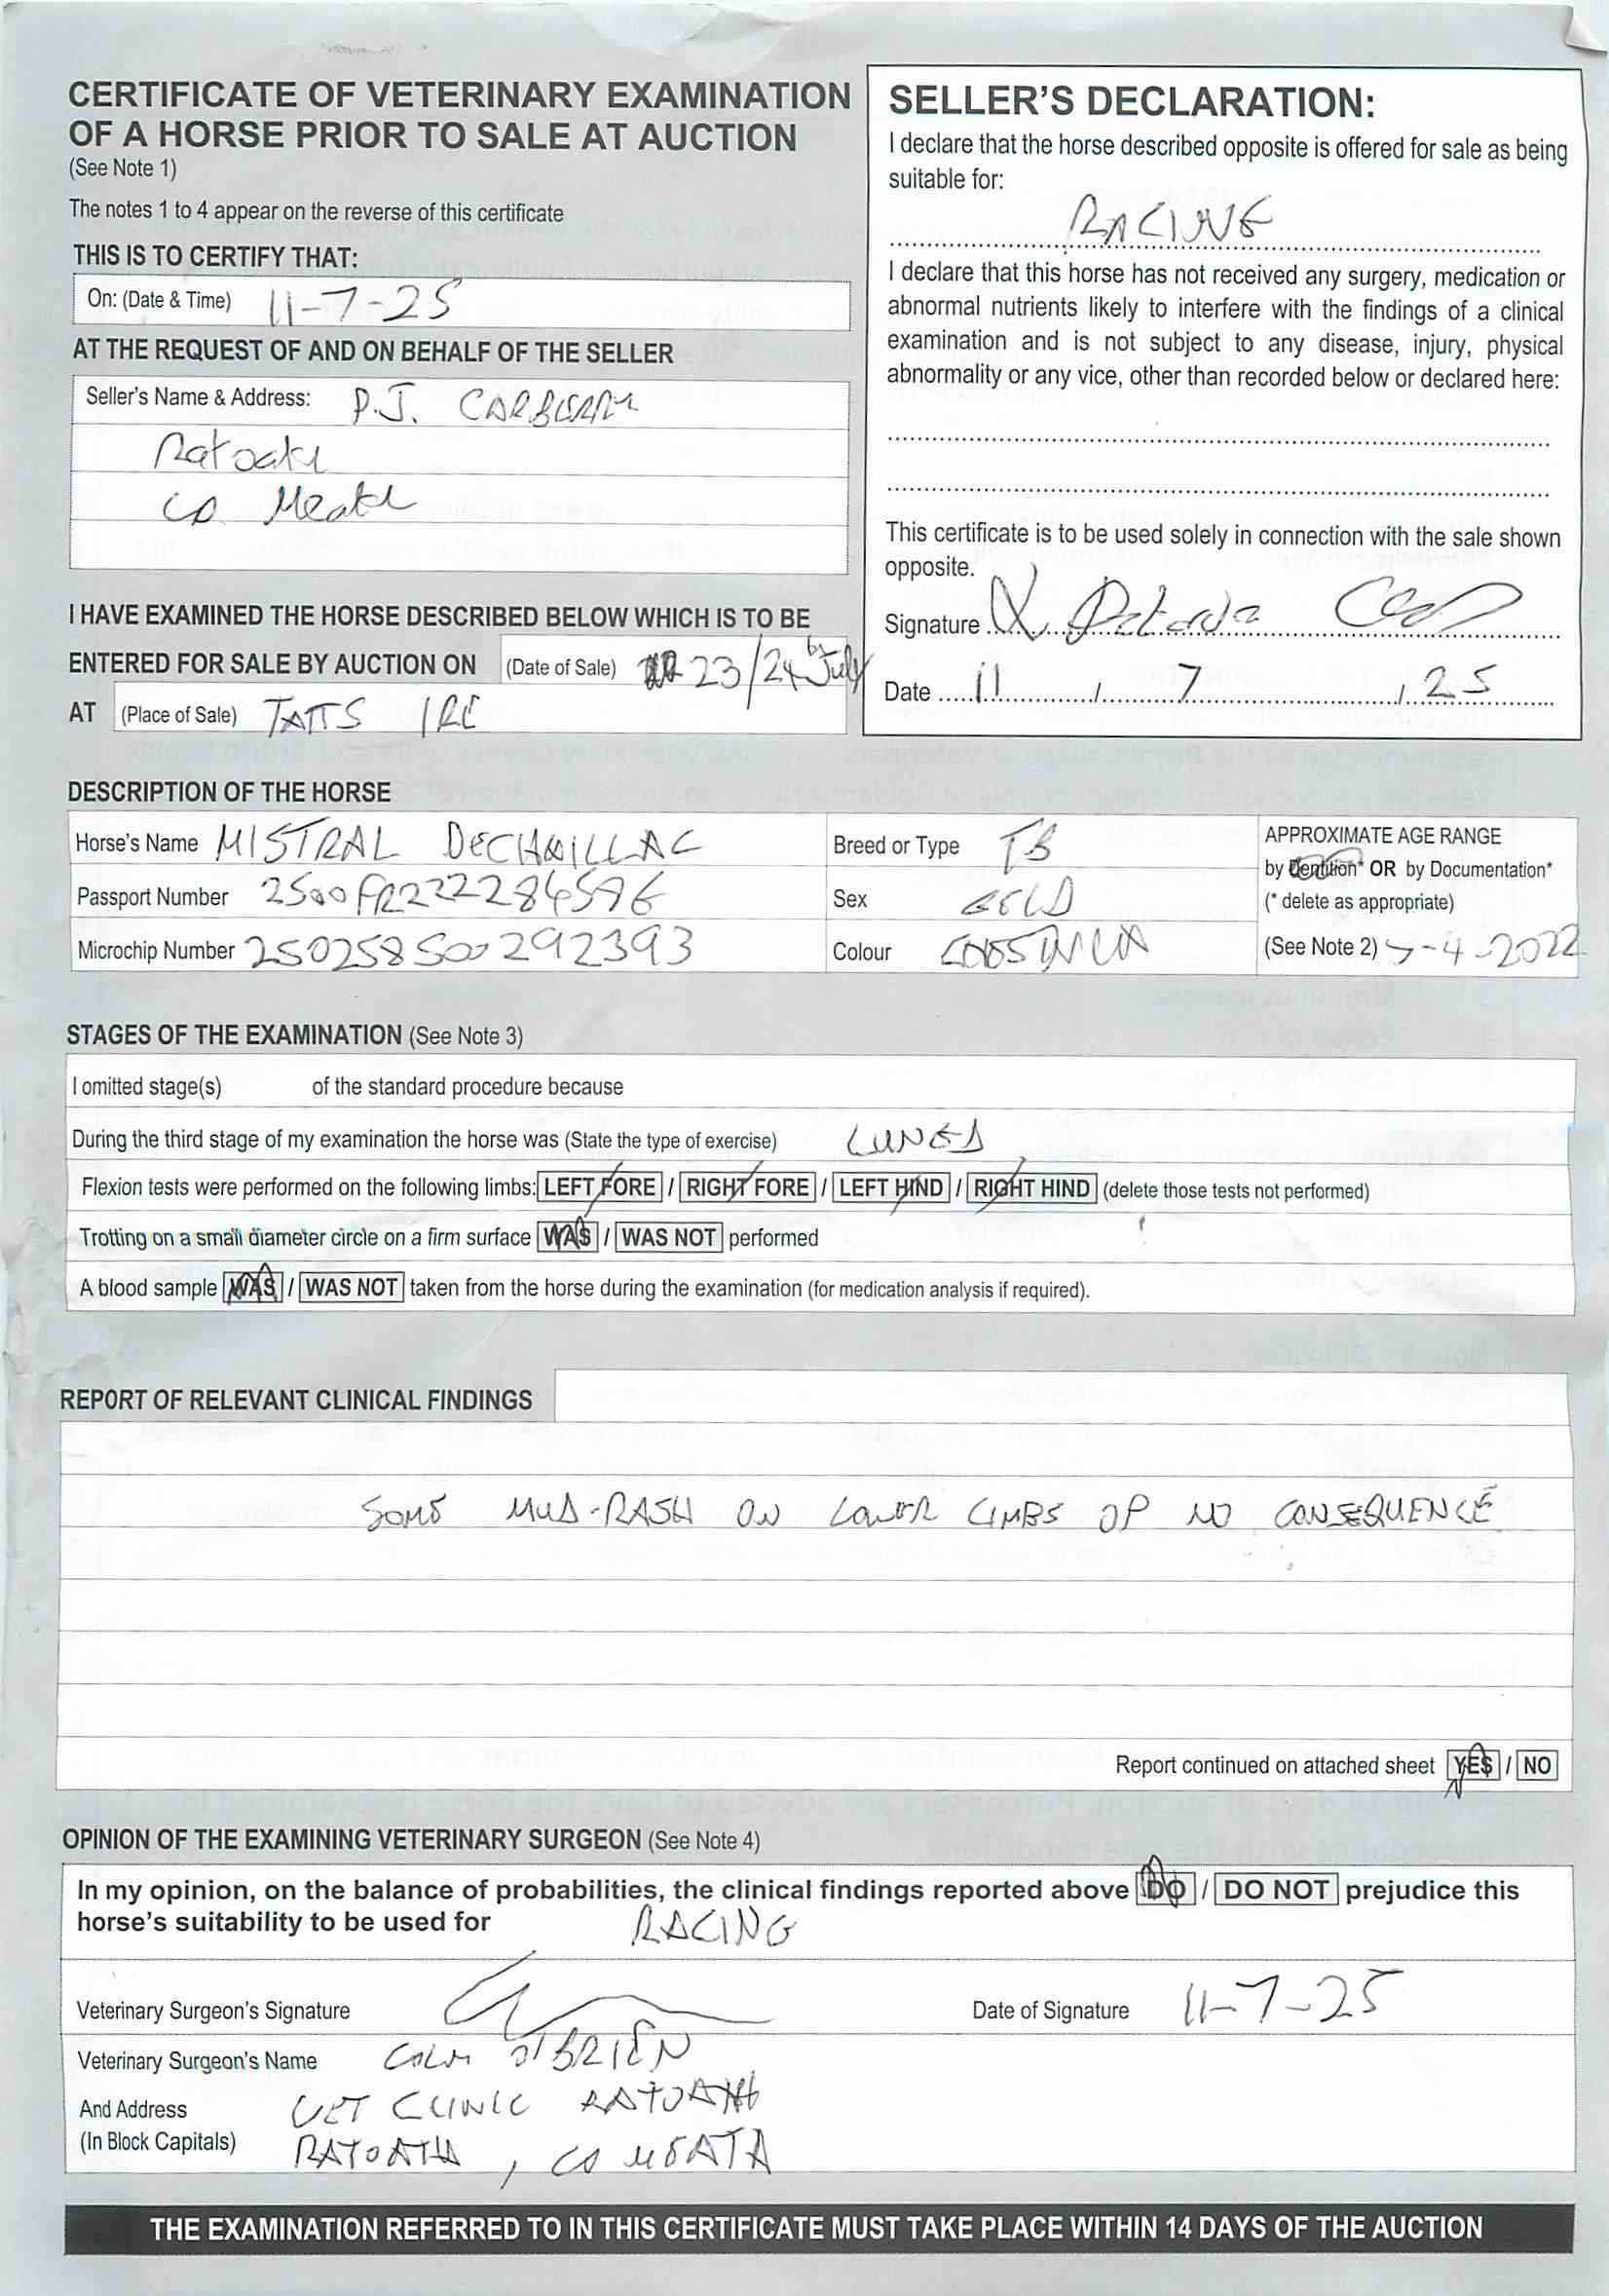 CERTIFICATE OF VETERINARY EXAMINATION
OF A HORSE PRIOR TO SALE AT AUCTION
(See Note 1)
The notes 1 to 4 appear on the reverse of this certificate
THIS IS TO CERTIFY THAT:
On: (Date & Time) 11-7-25
AT THE REQUEST OF AND ON BEHALF OF THE SELLER
Seller's Name & Address: P.J. CARBERRY
Ratoath
Co Meath
I HAVE EXAMINED THE HORSE DESCRIBED BELOW WHICH IS TO BE
ENTERED FOR SALE BY AUCTION ON (Date of Sale) 23/24 July
AT (Place of Sale) TATTS IRE
SELLER'S DECLARATION:
I declare that the horse described opposite is offered for sale as being
suitable for:
RACING
I declare that this horse has not received any surgery, medication or
abnormal nutrients likely to interfere with the findings of a clinical
examination and is not subject to any disease, injury, physical
abnormality or any vice, other than recorded below or declared here:
This certificate is to be used solely in connection with the sale shown
opposite.
Signature
Date 11 / 7 / 25
DESCRIPTION OF THE HORSE
Horse's Name MISTRAL DECHAILLAC Breed or Type TB APPROXIMATE AGE RANGE
by Dentition* OR by Documentation*
Passport Number 2500FR22228459G Sex GELD (* delete as appropriate)
Microchip Number 250258500292393 Colour CHESTNUT (See Note 2) 7-4-2022
STAGES OF THE EXAMINATION (See Note 3)
I omitted stage(s) of the standard procedure because
During the third stage of my examination the horse was (State the type of exercise) LUNGED
Flexion tests were performed on the following limbs: LEFT FORE / RIGHT FORE / LEFT HIND / RIGHT HIND (delete those tests not performed)
Trotting on a small diameter circle on a firm surface WAS / WAS NOT performed
A blood sample WAS / WAS NOT taken from the horse during the examination (for medication analysis if required).
REPORT OF RELEVANT CLINICAL FINDINGS
SOME MUD-RASH ON LOWER LIMBS OF NO CONSEQUENCE
Report continued on attached sheet YES / NO
OPINION OF THE EXAMINING VETERINARY SURGEON (See Note 4)
In my opinion, on the balance of probabilities, the clinical findings reported above DO / DO NOT prejudice this
horse's suitability to be used for RACING
Veterinary Surgeon's Signature Date of Signature 11-7-25
Veterinary Surgeon's Name COLM O'BRIEN
And Address VET CLINIC RATOATH
(In Block Capitals) RATOATH, CO MEATH
THE EXAMINATION REFERRED TO IN THIS CERTIFICATE MUST TAKE PLACE WITHIN 14 DAYS OF THE AUCTION